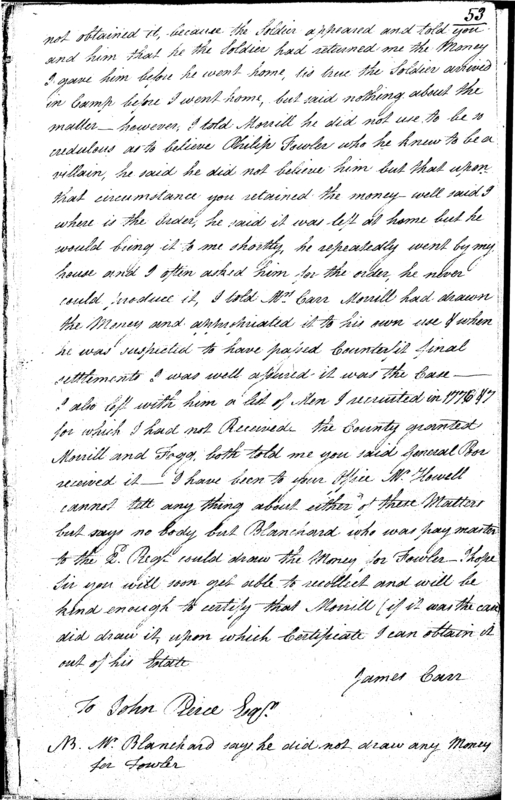 53
not obtained it, because the Soldier appeared and told you
and him that he the Soldier had returned me the Money
I gave him before he went home, tis true the Soldier arrived
in Camp before I went home, but said nothing about the
matter — however, I told Morrill he did not use to be so
credulous as to believe Philip Fowler who he knew to be a
villain, he said he did not believe him but that upon
that circumstance you retained the money — well said I
where is the Order, he said it was left at home but he
would bring it to me shortly, he repeatedly went by my
house and I often asked him for the order, he never
could produce it, I told Mrs Carr Morrill had drawn
the Money and appropriated it to his own use & when
he was suspected to have passed Counterfit final
settlements I was well assured it was the Case —
I also left with him a list of Men I recruited in 1776 & 7
for which I had not Received the County granted
Morrill and Fogg, both told me you said General Poor
received it — I have been to your Office Mr. Howell
cannot tell any thing about either of these Matters
but says no body but Blanchard who was pay master
to the 2d. Regt. could draw the Money for Fowler — I hope
Sir you will soon get able to recollect and will be
kind enough to certify that Morrill (if it was the case)
did draw it, upon which Certificate I can obtain it
out of his Estate
James Carr
To John Pierce Esqr.
NB. Mr. Blanchard says he did not draw any Money
for Fowler